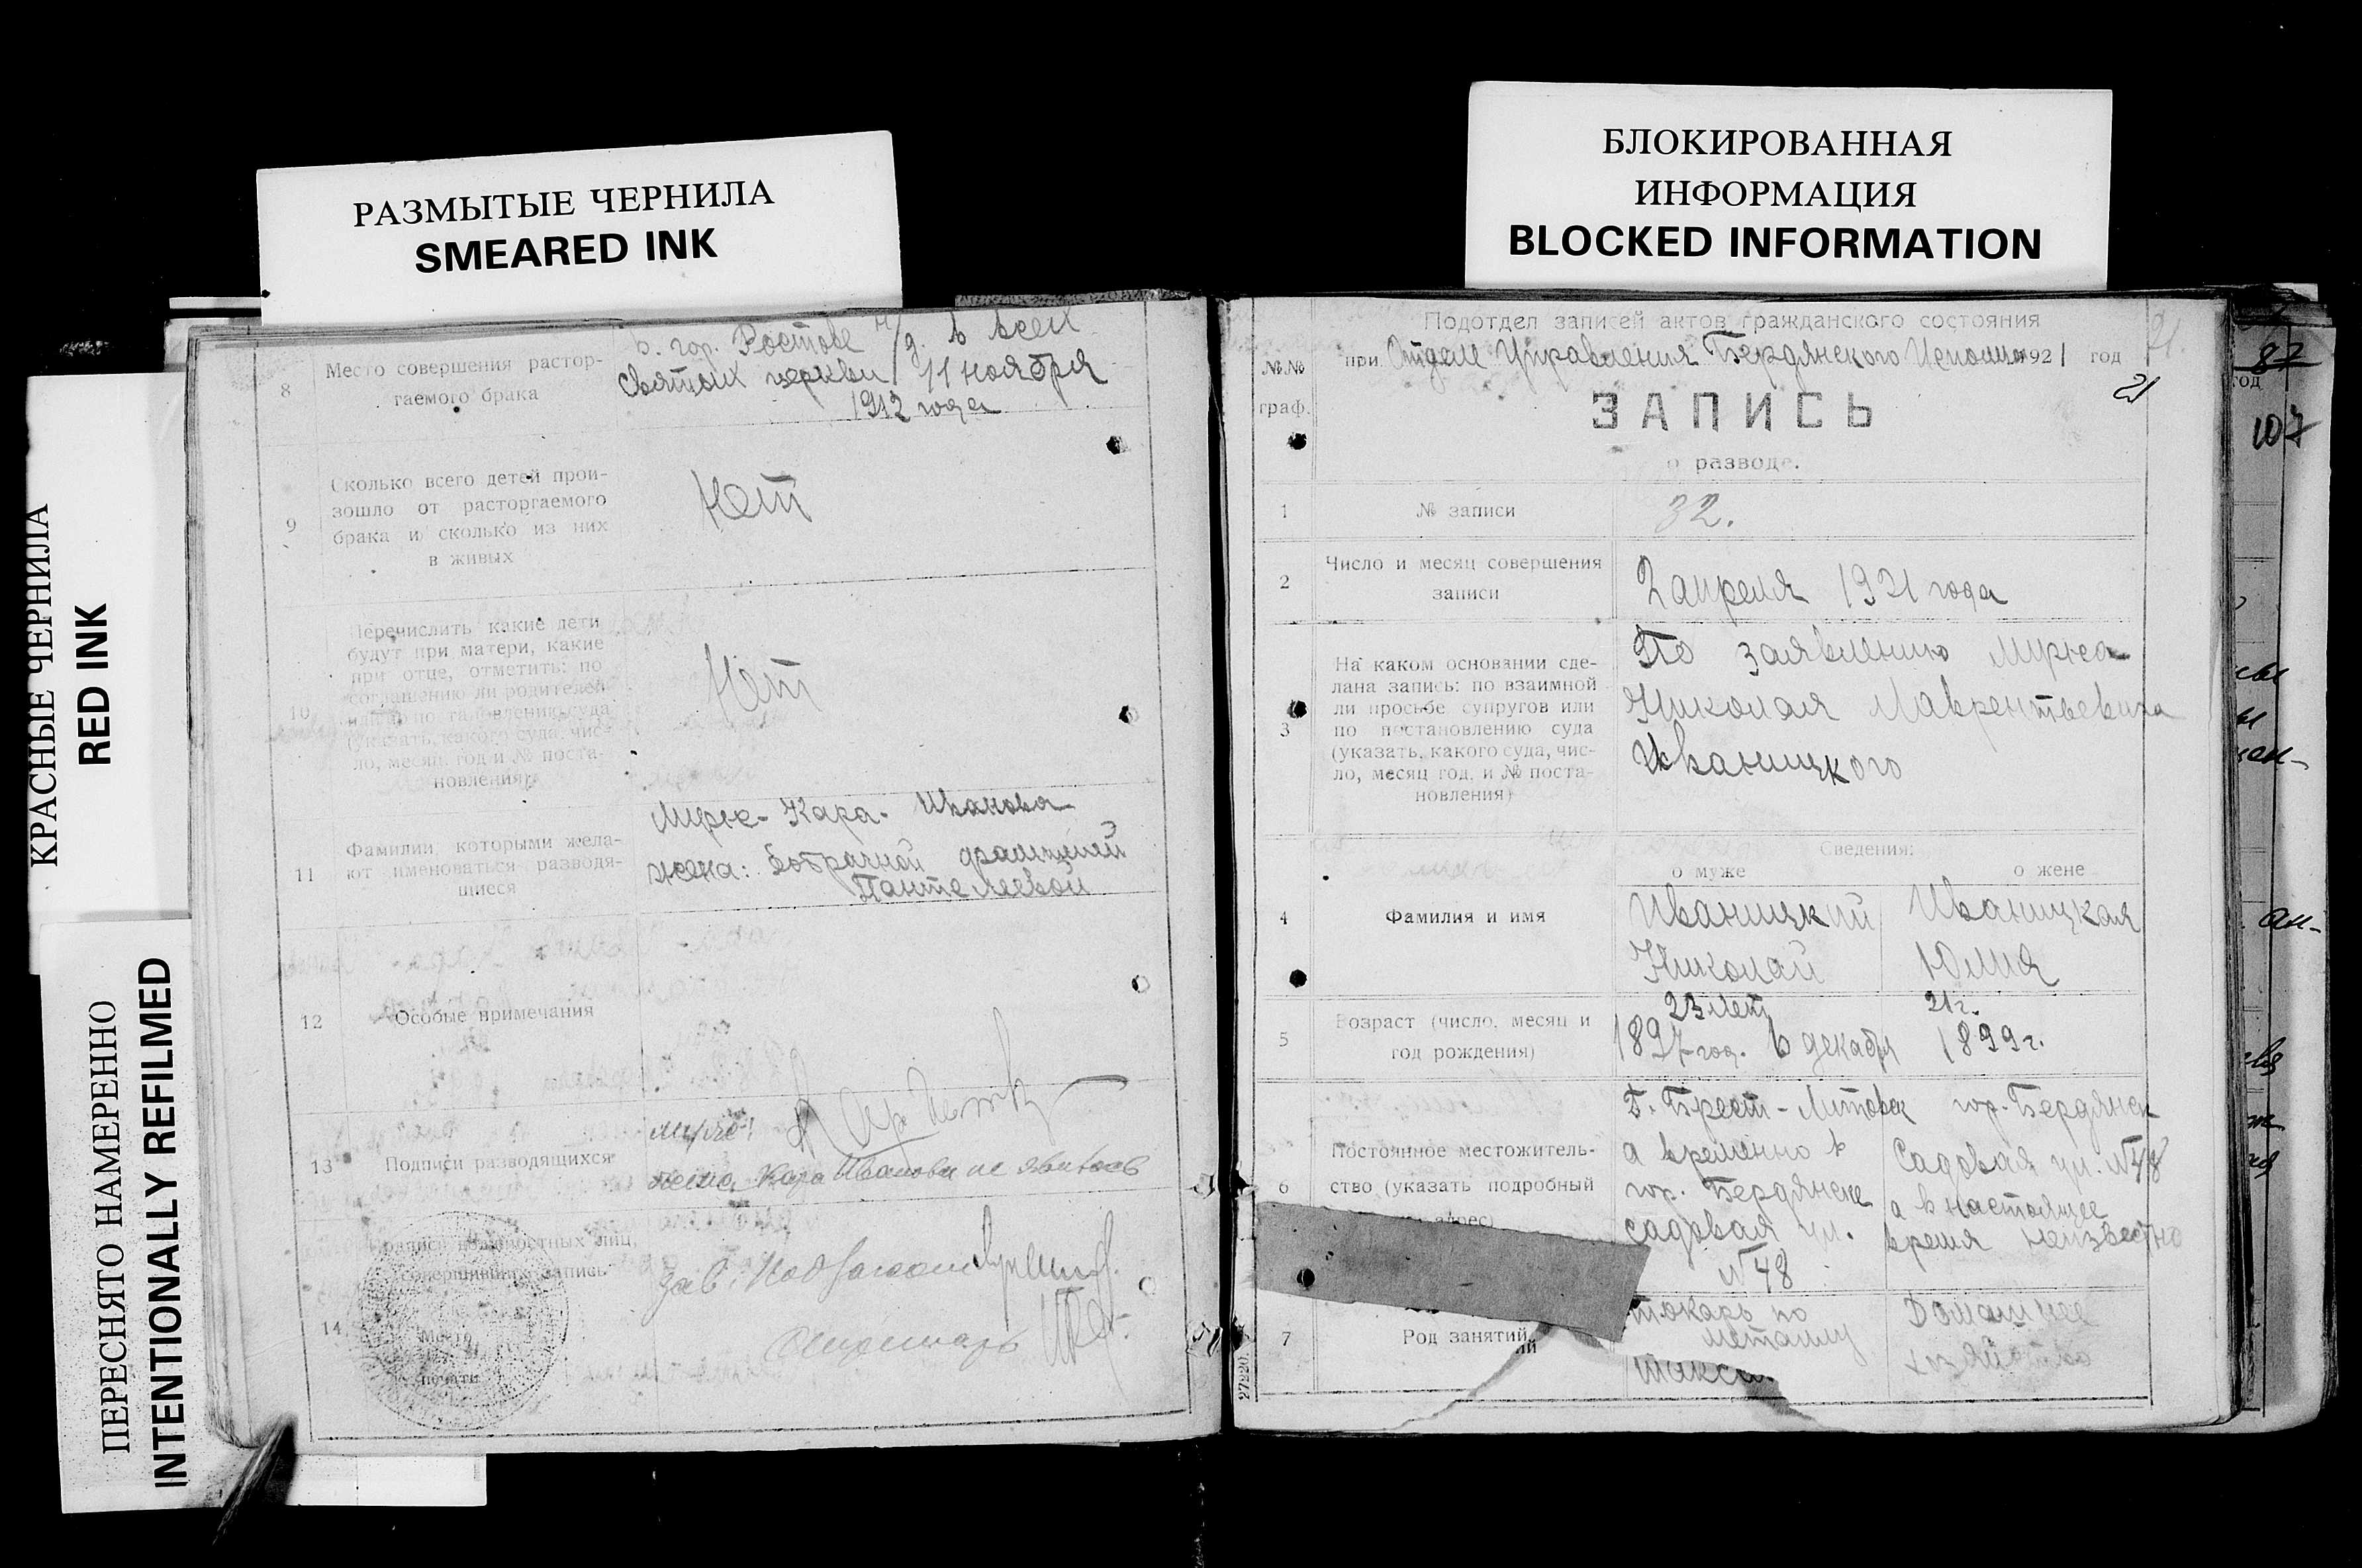 РАЗМЫТЫЕ ЧЕРНИЛА
SMEARED INK
БЛОКИРОВАННАЯ
ИНФОРМАЦИЯ
BLOCKED INFORMATION
КРАСНЫЕ ЧЕРНИЛА
RED INK
ПЕРЕСНЯТО НАМЕРЕННО
INTENTIONALLY REFILMED
8
Место совершения растор-
гаемого брака
в. гор. Ростове н/д. в всех
святых церкви 11 ноября
1912 года
9
Сколько всего детей прои-
зошло от расторгаемого
брака и сколько из них
в живых
Нет
10
Перечислить какие дети
будут при матери, какие
при отце, отметить: по
соглашению ли родителей
(указать, какого суда, чис-
ло, месяц, год и № поста-
новления)
Нет
11
Фамилии, которыми жела-
ют именоваться разводя-
щиеся
Муж - Кара - Иванова
жена: добрачной фамилией
Пантелеевой
12
Особые примечания
13
Подписи разводящихся
муж:
жена Кара Иванова не явилась
14
Подписи должностных лиц,
совершивших запись
Место
печати
Зав:
Секретарь
Подотдел записей актов гражданского состояния
№№
граф.
при Отделе Управления Бердянского Исполко 1921 год
21
ЗАПИСЬ
о разводе.
1
№ записи
32.
2
Число и месяц совершения
записи
2 апреля 1921 года
3
На каком основании сде-
лана запись: по взаимной
ли просьбе супругов или
по постановлению суда
(указать, какого суда, чис-
ло, месяц год, и № поста-
новления)
По заявлению мужа
Николая Лаврентьевича
Иваницкого
Сведения:
о муже
о жене
4
Фамилия и имя
Иваницкий
Николай
Иваницкая
Юлия
5
Возраст (число, месяц и
год рождения)
23 лет
1897 год. 6 декабря
21 г.
1899 г.
6
Постоянное местожитель-
ство (указать подробный
адрес)
Г. Брест-Литовск
а временно в
гор. Бердянске
садовая ул.
№ 48
гор. Бердянск
Садовая ул. № 48
а в настоящее
время неизвестно
7
Род занятий
токарь по
металлу
Домашнее
хозяйство
27220
87
год
107